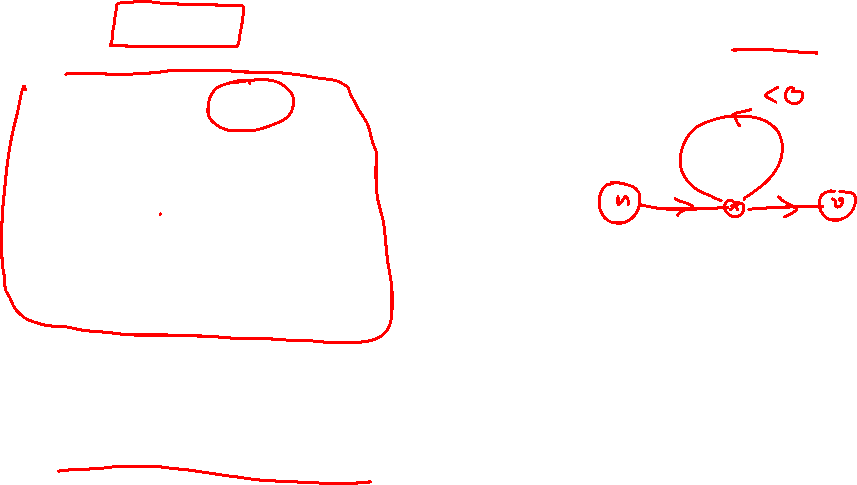 <0
s x v